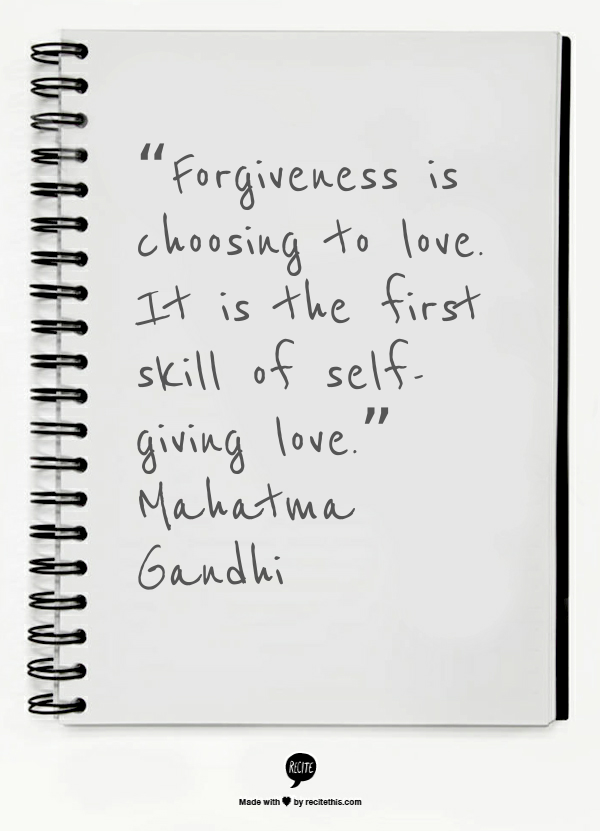 “Forgiveness is
choosing to love.
It is the first
skill of self-
giving love.”
Mahatma
Gandhi
RECITE
Made with ♥ by recitethis.com